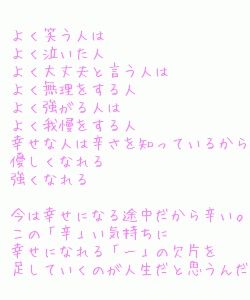 よく笑う人は
よく泣いた人
よく大丈夫と言う人は
よく無理をする人
よく強がる人は
よく我慢をする人
幸せな人は辛さを知っているから
優しくなれる
強くなれる
今は幸せになる途中だから辛い。
この「辛」い気持ちに
幸せになれる「一」の欠片を
足していくのが人生だと思うんだ